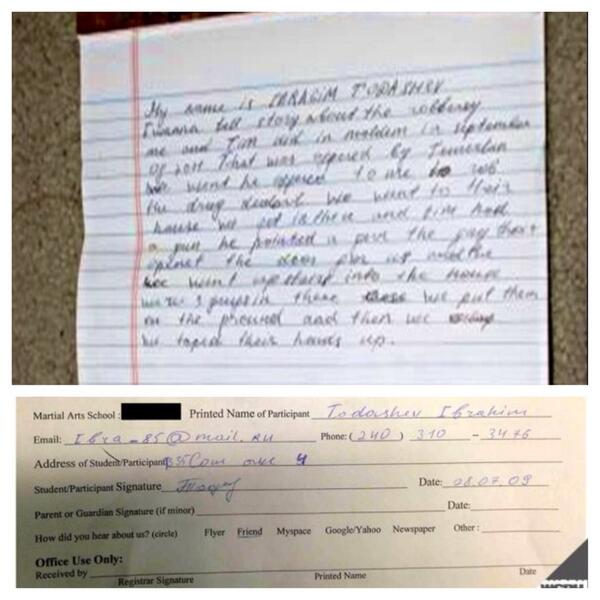 My name is IBRAGIM TODASHEV
I wanna tell story about the robbery
me and Tam did in in september
of 2011 That was offered by Tamerlan
went he offered to me to rob
the drug dealers. We went to their
house we got in there and had
a gun he pointed the guy that
opened the door for us
we went upstairs into the house
3 guys in there we put them
on the ground and then we
we taped their hands up.
Martial Arts School : Printed Name of Participant Todashev Ibrahim
Email: Ibra-85@mail.ru Phone: (240) 310 - 3476
Address of Student/Participant
Student/Participant Signature Date: 08.07.09
Parent or Guardian Signature (if minor) Date:
How did you hear about us? (circle) Flyer Friend Myspace Google/Yahoo Newspaper Other :
Office Use Only:
Received by
Registrar Signature Printed Name Date